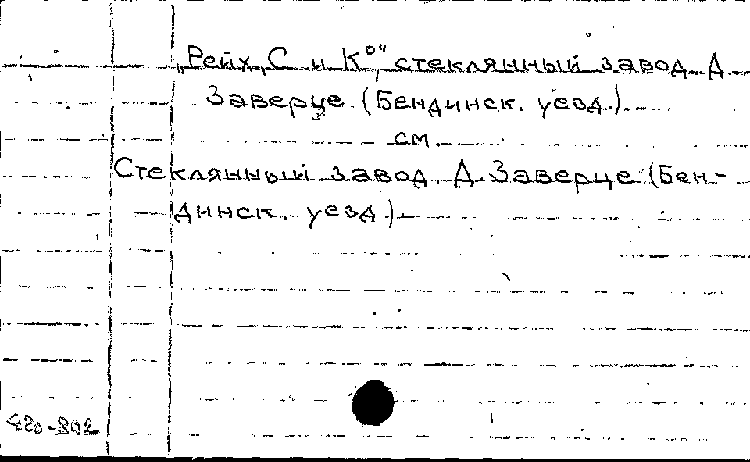 „Рейх, С и К°", стеклянный завод. Д.
Заверце (Бендинск. уезд.).
см.
Стеклянный завод. Д. Заверце (Бен-
динск. уезд).